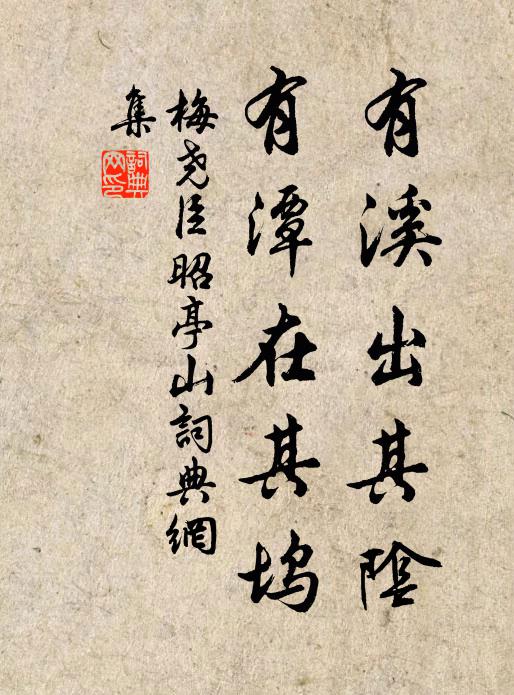 有溪出其陰
有潭在其坞
梅尧臣昭亭山詞典網
集
詞典
网印